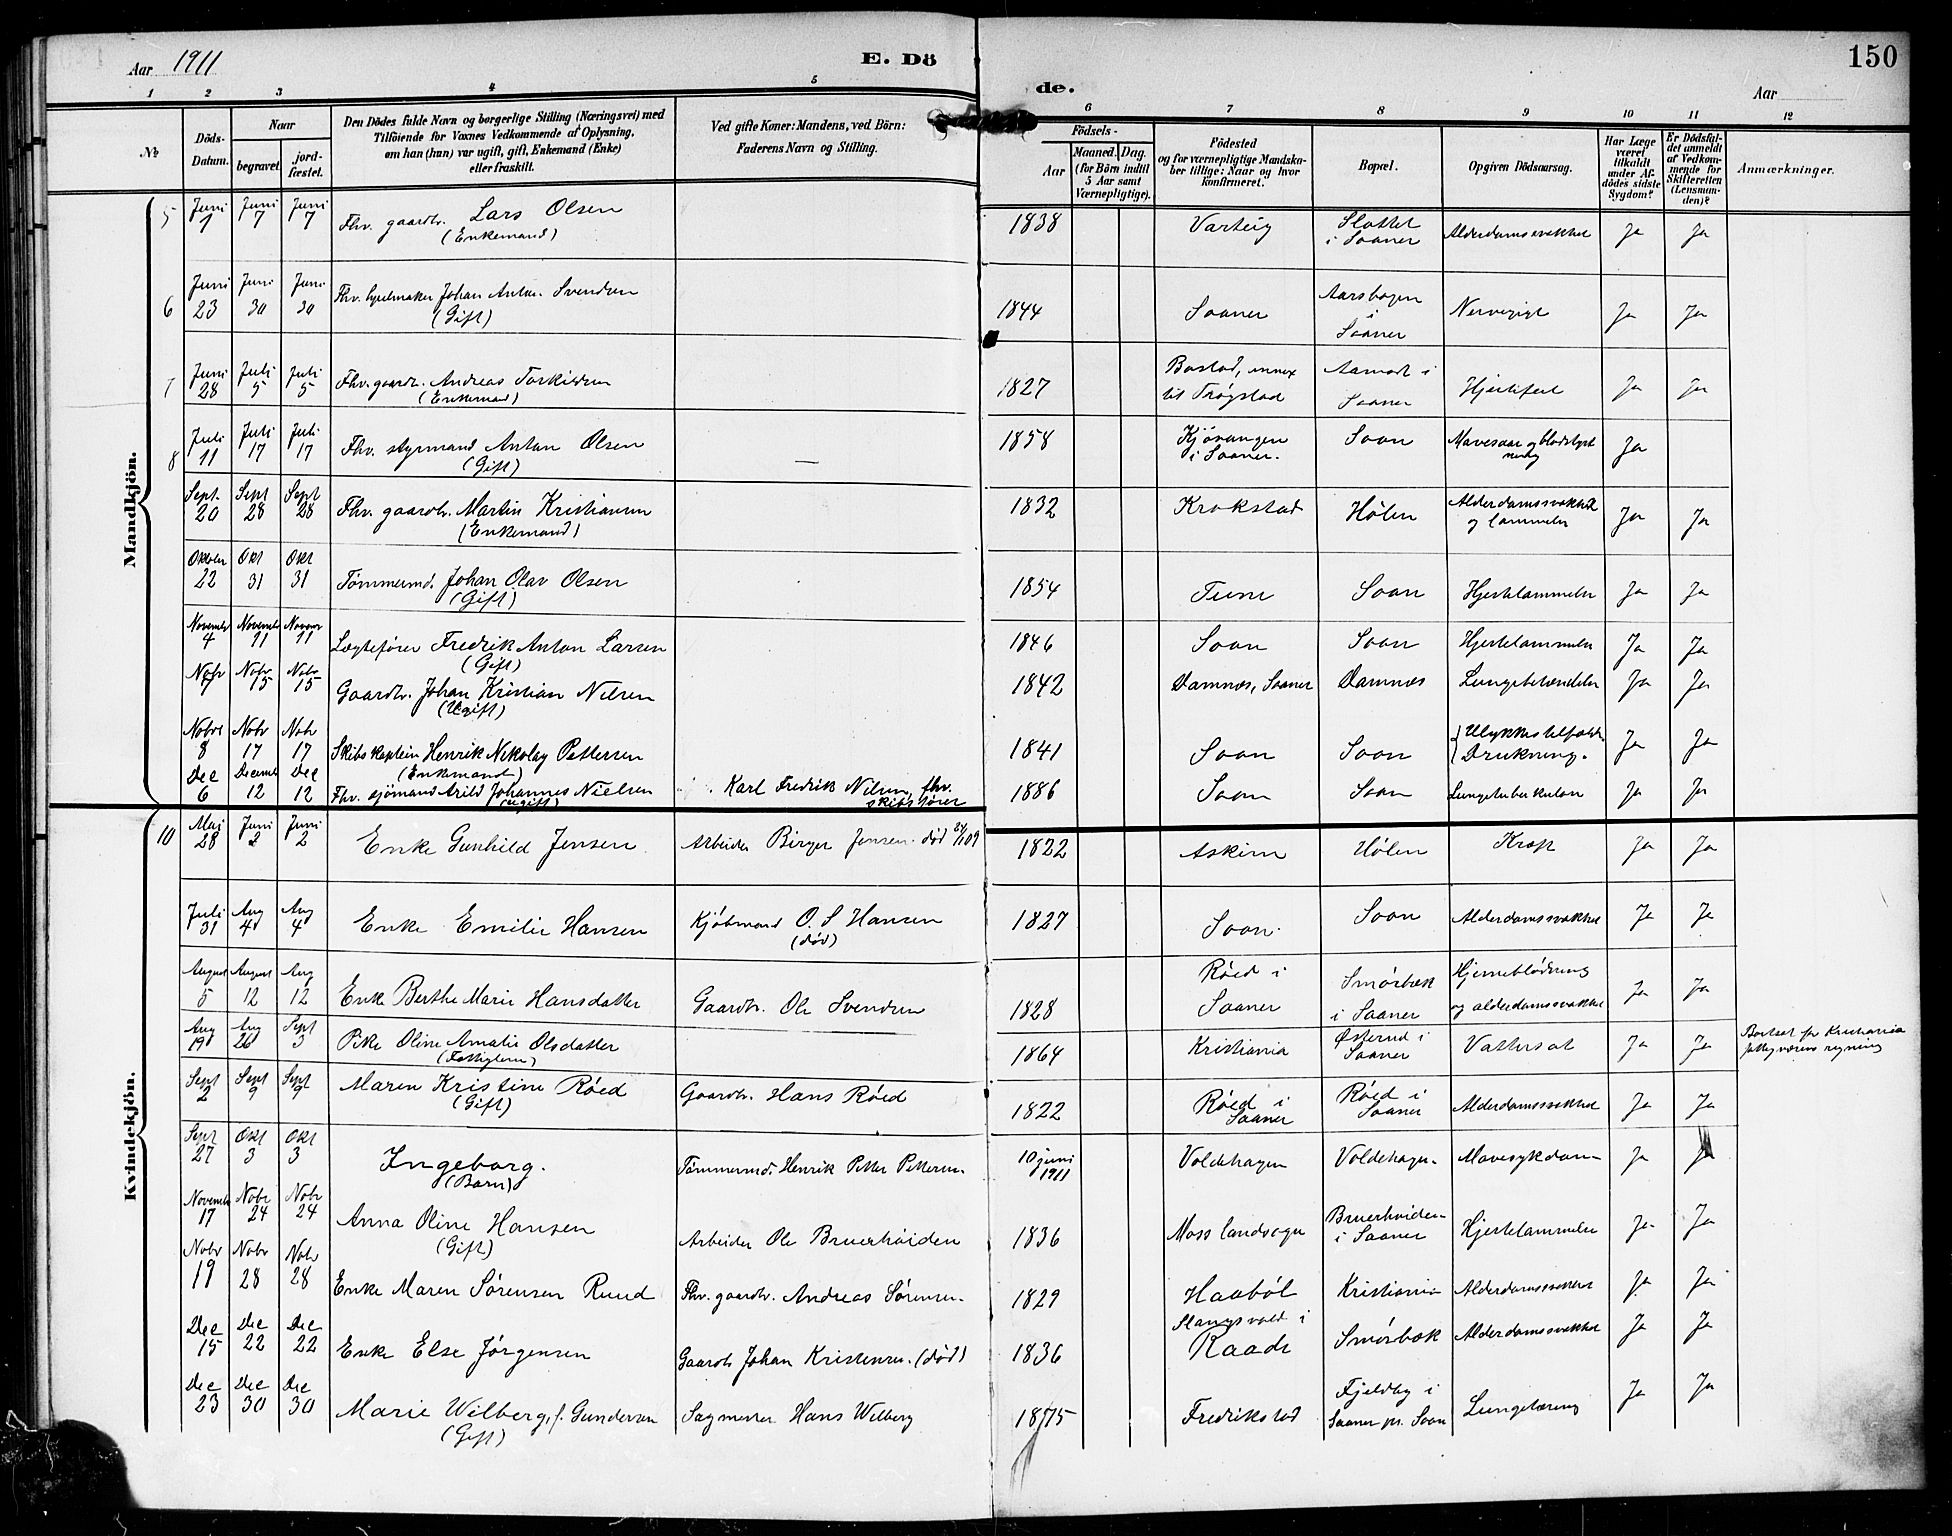 Aar 1911
E. Dö
de.
Aar
150
1 2 3 4 5 6 7 8 9 10 11 12
№
Döds-Datum.
Naar
begravet.
jordfæstet.
Den Dödes fulde Navn og borgerlige Stilling (Næringsvei) med
Tilföiende for Voxnes Vedkommende af Oplysning,
om han (hun) var ugift, gift, Enkemand (Enke)
eller fraskilt.
Ved gifte Koner: Mandens, ved Börn:
Faderens Navn og Stilling.
Födsels-
Aar
Maaned. Dag.
(for Börn indtil
5 Aar samt
Værnepligtige).
Födested
og for værnepligtige Mandskaber tillige: Naar og hvor
konfirmeret.
Bopæl.
Opgiven Dödsaarsag.
Har Læge
været
tilkaldt
under Afdödes sidste
Sygdom?
Er Dödsfaldet anmeldt
af Vedkommende for
Skifteretten
(Lensmanden)?
Anmærkninger.
Mandkjön.
5 Juni 1 Juni 7 Juni 7 Fhv. gaardbr. Lars Olsen (Enkemand) 1838 Varteig Slottet i Saaner Alderdomssvakhet Ja Ja
6 Juni 23 Juni 30 Juni 30 Fhv. hjulmaker Johan Anton Svendsen (Gift) 1844 Saaner i Saaner Nervegigt Ja Ja
7 Juni 28 Juli 5 Juli 5 Fhv. gaardbr. Andreas Torkildsen (Enkemand) 1827 Baastad, annex til Trøgstad Aamodt i Saaner Hjertefeil Ja Ja
8 Juli 11 Juli 17 Juli 17 Fhv. styrmand Anton Olsen (Gift) — 1858 Kjøvangen i Saaner. Soon Mavesaar og Ja
Sept. 20 Sept 28 Sept 28 Fhv. gaardbr. Martin Kristiansen (Enkemand) 1832 Krokstad Hølen Alderdomssvakhet og lammelse Ja Ja
Oktober 22 Okt 31 Okt 31 Tømmermd. Johan Olav Olsen (Gift) 1854 Tune Soon Hjertelammelse Ja Ja
November 4 November 11 November 11 Lægtefører Fredrik Anton Larsen (Gift) 1846 Soon Soon Hjertelammelse Ja Ja
Nobr 7 Nobr 15 Nobr 15 Gaardbr. Johan Kristian Nilsen (Ugift) 1842 Damnes, Saaner Damnes Lungebetændelse Ja Ja
Nobr 8 Nobr 17 Nobr 17 Skibskaptein Henrik Nikolay Pettersen (Enkemand) 1841 Soon Soon Ulykkestilfælde Drukning. Ja Ja
Dec 6 Decemb 12 Dec 12 Fhv. sjømand Arild Johannes Nielsen (ugift) Karl Fredrik Nilsen, fhv. skibsfører 1886 Soon Soon Lungetuberkulose Ja Ja
Kvindekjön.
10 Mai 28 Juni 2 Juni 2 Enke Gunhild Jensen Arbeider Birger Jensen. død 1822 Askim Hølen Kræft Ja Ja
Juli 31 Aug 4 Aug 4 Enke Emilie Hansen Kjøbmand O. S Hansen (død) 1827 Soon. Soon Alderdomssvakhet Ja Ja
August 5 August 12 Aug 12 Enke Berthe Marie Hansdatter Gaardbr. Ole Svendsen 1828 Røed i Saaner Smørbæk i Saaner Hjerneblødning og alderdomssvakhet Ja Ja
Aug 19 Aug 26 Sept 3 Pike Oline Amalie Olsdatter (Fattiglem) 1864 Kristiania Østerud i Saaner Vattersot Ja Ja Bortsat for Kristiania fattigvæsens regning
Sept 2 Sept 9 Sept 9 Maren Kristine Røed (Gift) Gaardbr. Hans Røed 1822 Røed i Saaner Røed i Saaner Alderdomssvakhet Ja Ja
Sept 27 Okt 3 Okt 3 Ingeborg. (Barn) Tømmermd. Henrik Petter Pettersen. 10 juni 1911 Voldehagen Voldehagen Mavesykdom Ja Ja
November 17 Nobr 24 Nobr 24 Anna Oline Hansen (Gift) Arbeider Ole Bruerhøiden 1836 Moss landsogn Bruerhøiden i Saaner Hjertelammelse Ja Ja
Nobr 19 Nobr 28 Nobr 28 Enke Maren Sørensen Ruud Fhv. gaardbr. Andreas Sørensen. 1829 Haabøl Kristiania Alderdomssvakhet Ja Ja
Dec 15 Dec 22 Dec 22 Enke Else Jørgensen Gaardb Johan Kristensen. (død) 1836 Slangsvold i Raade Smørbæk Alderdomssvakhet Ja Ja
Dec 23 Dec 30 Dec 30 Marie Wilberg, f. Gundersen (Gift) Sagmester Hans Wilberg 1875 Fredrikstad Fjeldby i Saaner pr. Soon Lungetæring Ja Ja